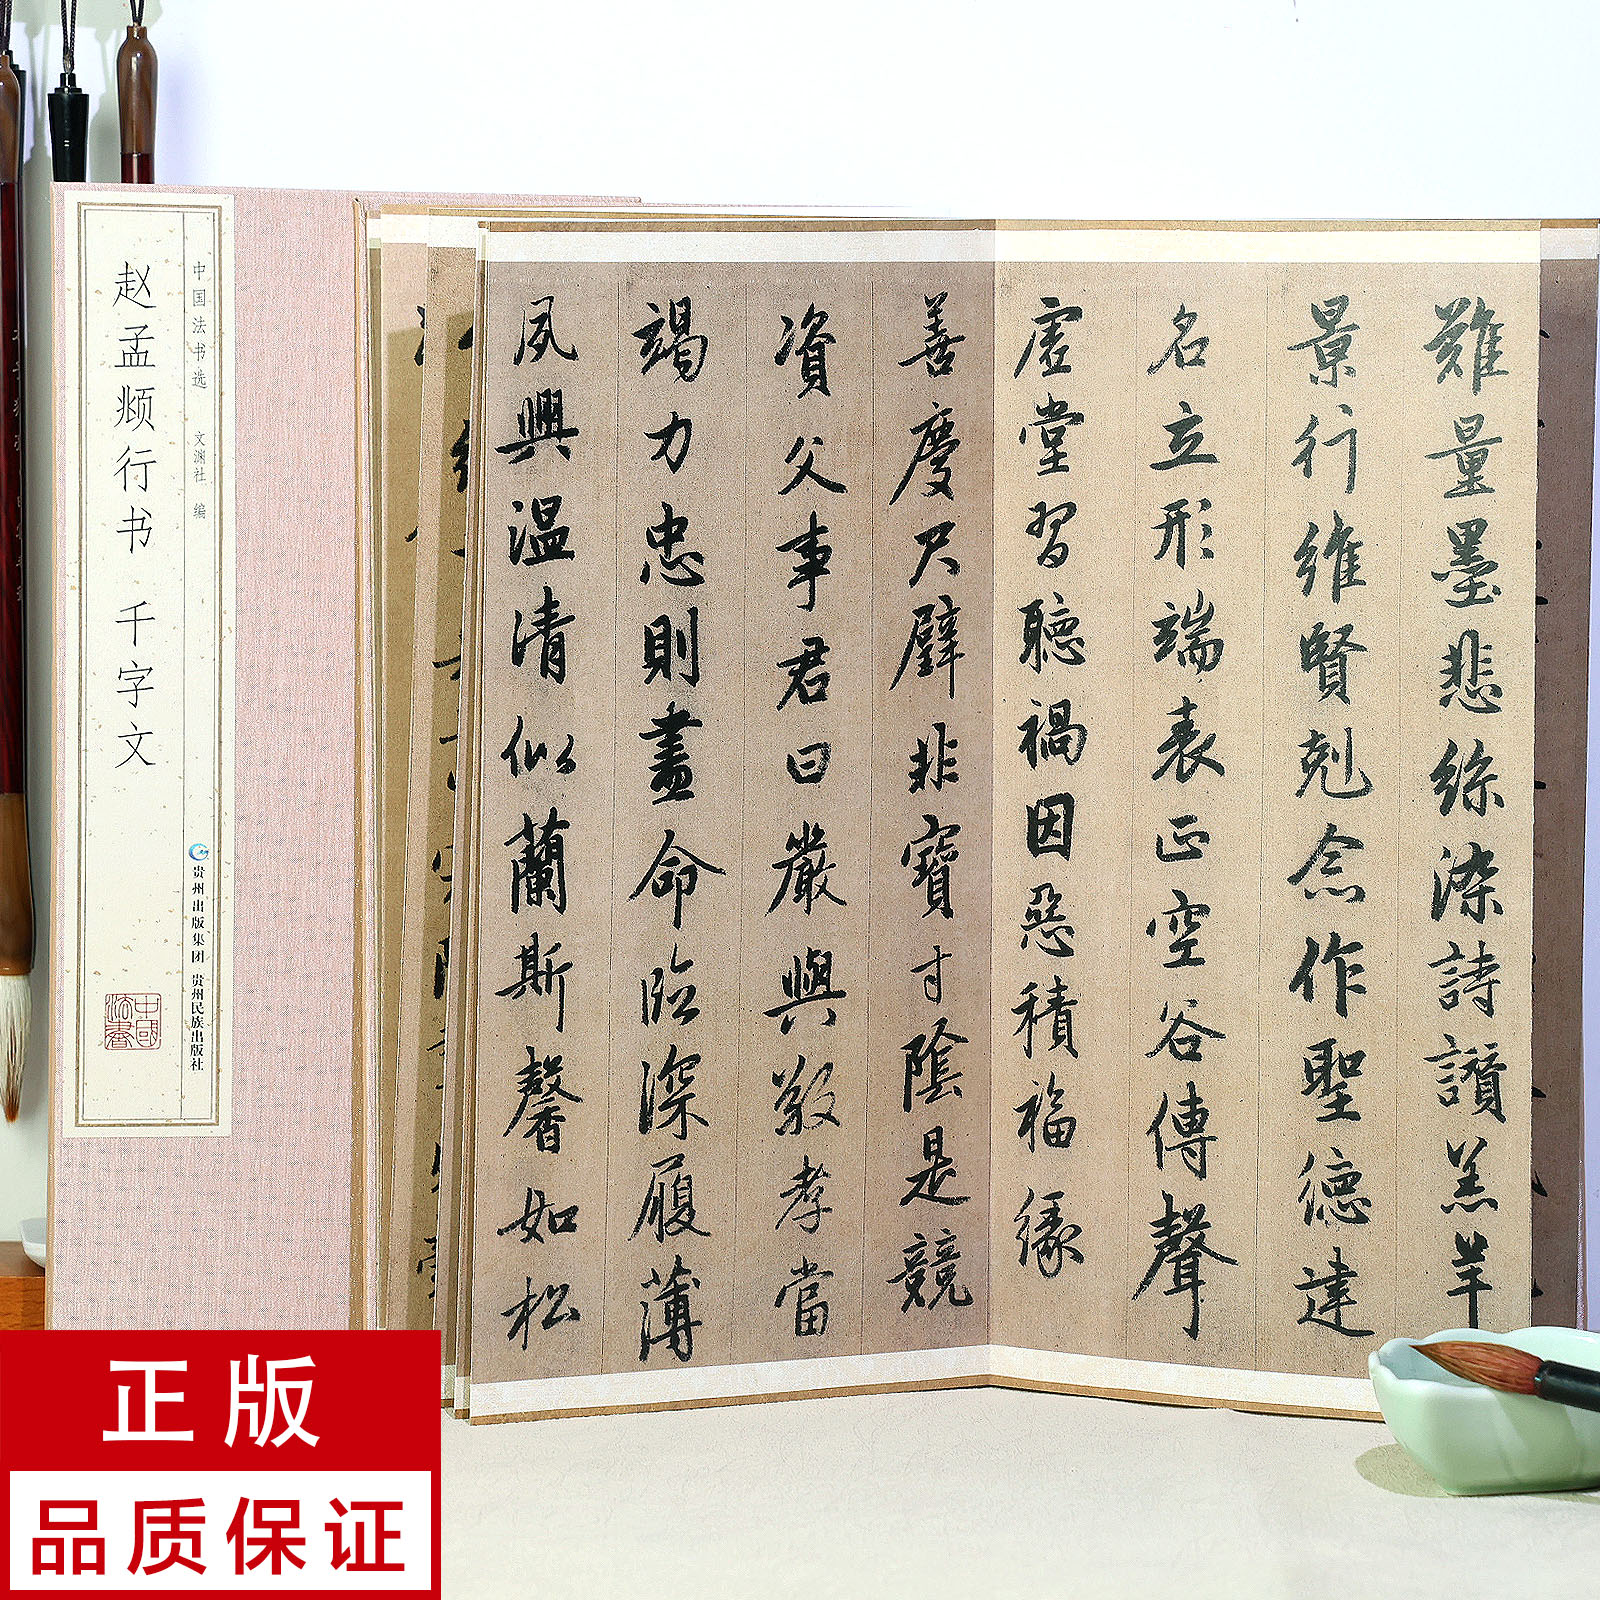 中国法书选 文渊社 编
赵孟𫖯行书 千字文
贵州出版集团 贵州民族出版社
中國法書
難量墨悲絲染詩讚羔羊
景行維賢剋念作聖德建
名立形端表正空谷傳聲
虛堂習聽禍因惡積福緣
善慶尺璧非寶寸陰是競
資父事君曰嚴與敬孝當
竭力忠則盡命臨深履薄
夙興温清似蘭斯馨如松
正版
品质保证